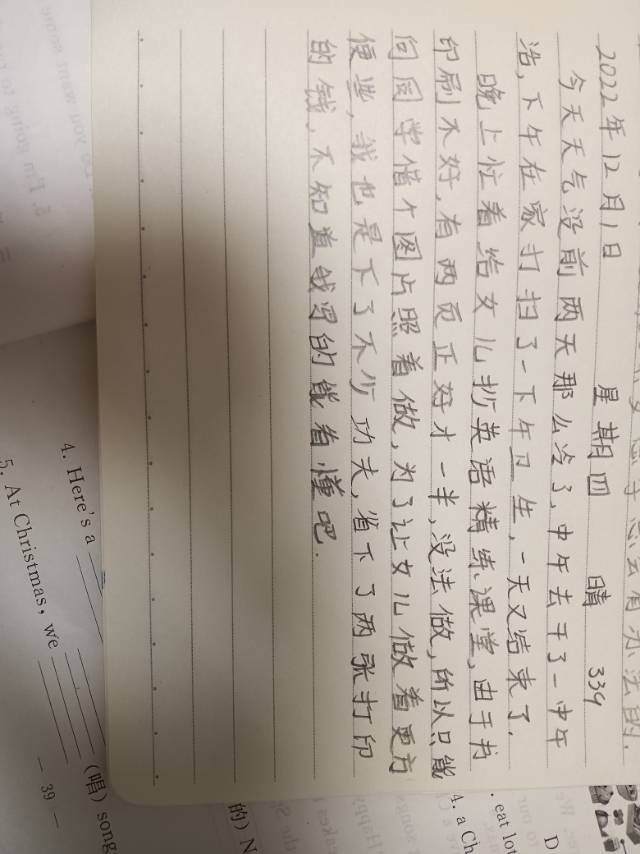 有办法的.
2022年12月1日 星期四 晴 339
今天天气没前两天那么冷了,中午去干了一中午
活,下午在家打扫了一下午卫生,一天又结束了.
晚上忙着给女儿抄英语精练课堂,由于书
印刷不好,有两页正好才一半,没法做,所以只能
问同学借个图片照着做,为了让女儿做着更方
便些,我也是下了不少功夫,省下了两张打印
的钱,不知道我写的能看懂吧.
4. Here's a
5. At Christmas, we (唱) song
— 39 —
的) N
4. a Ch
. eat lot
D